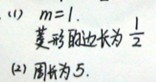 (1) m=1.
菱形的边长为 1/2
(2) 周长为 5.